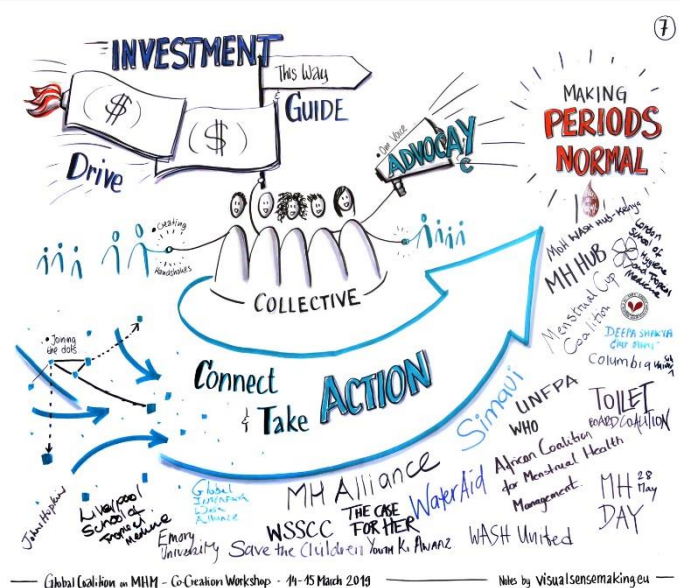 7
INVESTMENT
This Way
& GUIDE
Drive
($)
($)
• One Voice
ADVOCAY
C
MAKING
PERIODS
NORMAL
• Creating
Handshakes
COLLECTIVE
• Joining
the dots
Connect
& Take ACTION
MoH WASH Hub-Kenya
London
School of
Hygiene
and Tropical
Medicine
MH HUB
Menstrual Cup
Coalition
DEEPA SHAKYA
Columbia
Simavi
UNFPA
WHO
TOILET
BOARD COALITION
African Coalition
for Menstrual Health
Management
MH 28
May
DAY
John Hopkins
Liverpool
School of
Tropical
Medicine
Global
Interfaith
Wash
Alliance
Emory
University
MH Alliance
WSSCC
THE CASE
FOR HER
WaterAid
Save the Children
Youth Ki Awaaz
WASH United
Global Coalition on MHM - Co-Creation Workshop - 14-15 March 2019
Notes by visualsensemaking.eu